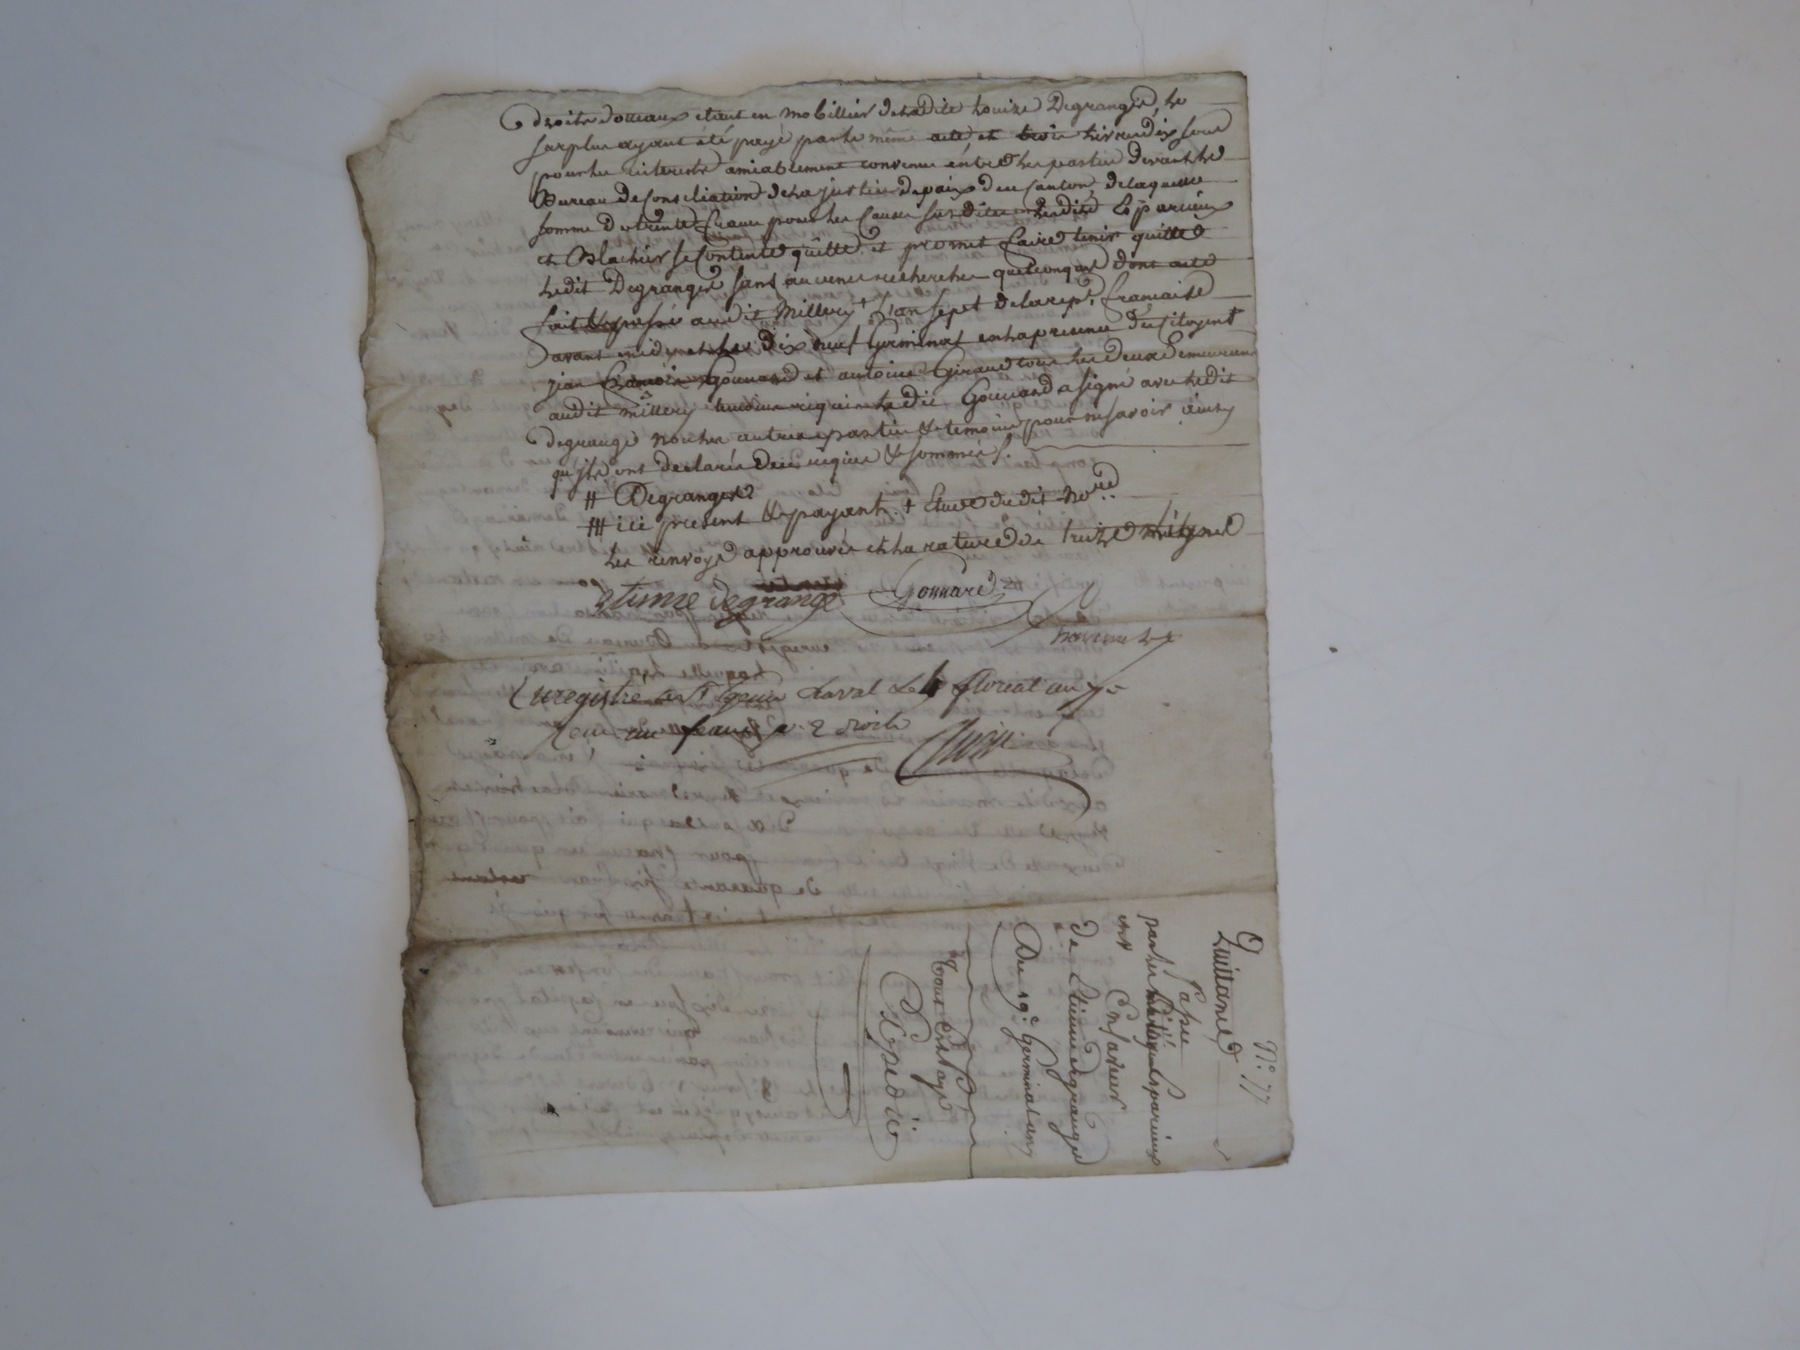 droits dotteaux etant en mobillier de ladite Louize Degrange, le
surplus ayant été payé par le même acte, et trois livres dix sous
pour les interests amiablement convenus entre les parties devant le
Bureau de Conciliation de la justice de paix du Canton, de laquelle
somme de trente francs pour les causes susdites lesdits Esparcieux
et Blachier se contente quitte et promet faire tenir quitte
ledit Degrange sans aucunes recherches quelconques dont acte
fait & passé audit Millery + l'an sept de la rep. francaise
avant midy et le dix neuf Germinal en la presence des Citoyens
jean Gouvard et antoine Giraud tous les deux demeurans
audit Millery ledit Gouvard a signé avec ledit
degrange non les autres parties & temoins pour ne savoir ainsy
qu'ils ont declarés de ce requis & sommés.
# Degrange
## ici present & payant. + Etude dudit no.re
les renvoys approuvés et la rature de treize
etienne degrange Gonnard
Enregistré a St genis Laval le 4 floreal an 7
Reçu un franc 2 droits
N.o 77
Quittance
Passée
par les Esparcieux
et Consorts
de Etienne degrange
Du 19.e Germinal an 7
Tout est payé
Expedié